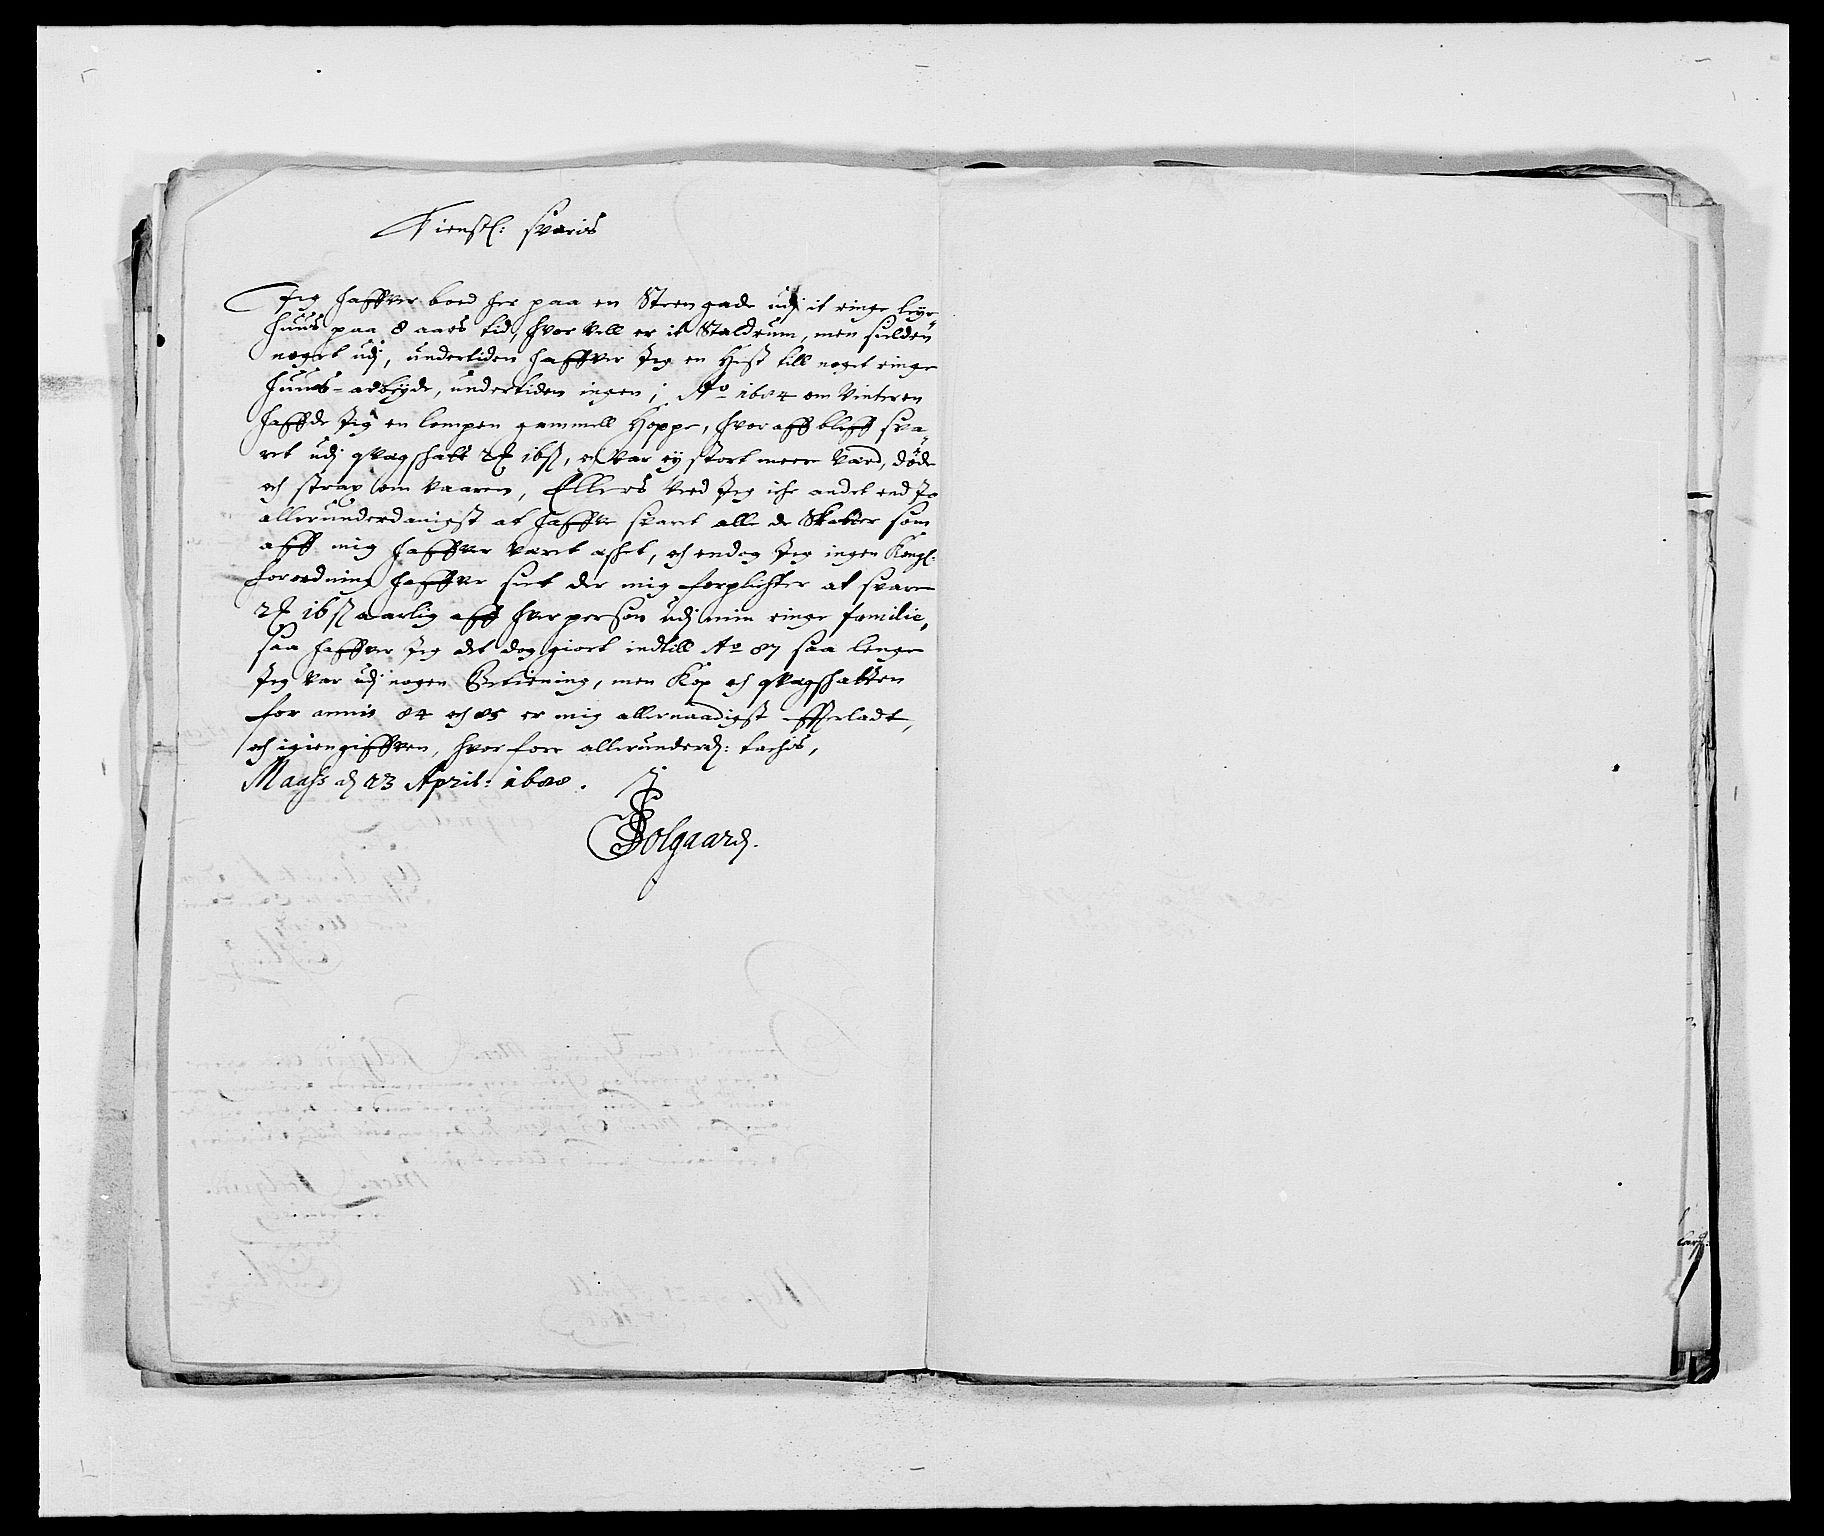 Tienstl: svaris
Jeg haffver boed her paa en Steengade udj it ringe leye
huus paa 8 aars tid, hvor vell er it Staldrum, men sielden
noget udj, undertiden haffver Jeg en Hest till noget ringe
huuus-arbeyde, undertiden ingen; Ao 1684 om Vinteren
haffde Jeg en lompen gammell Hoppe, hvoraff bleff sva-
ret udj qvegskatt 16 s, var ey stort meere værd, døde
och strax om vaaren, Ellers veed Jeg iche andet end Jo
allerunderdanigst at haffve svaret alle de Skatter som
aff mig haffver været æsket, och endog Jeg ingen Kongl:
forordning haffver seet der mig forplichter at svare
16 s aarlig aff hver person udj min ringe familie,
saa haffver Jeg det dog giort indtill Ao 87 saa lenge
Jeg var udj nogen Betiening, men Kop och qvegskatten
for annis 84 och 85 er mig allernaadigst effterladt,
och igiengiffven, hvorfore allerunderd: tachis,
Maass d 23 April: 1688.
Solgaard.